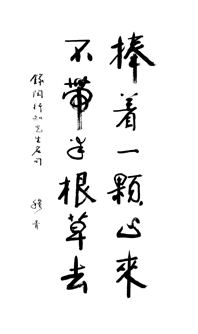 捧着一颗心来
不带半根草去
錄陶行知先生名句
穆青